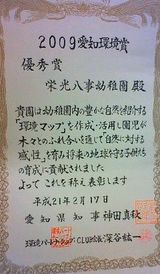 2009愛知環境賞
優秀賞
栄光八事幼稚園 殿
貴園は幼稚園内の豊かな自然を紹介する
「環境マップ」を作成・活用し園児が
木々とのふれ合いを通じて「自然に対する
感性」を育み将来の地球を守る子供たち
の育成に貢献されました
よってこれを称え表彰します
平成21年2月17日
愛知県知事 神田真秋
環境パートナーシップ・CLUB会長 深谷紘一